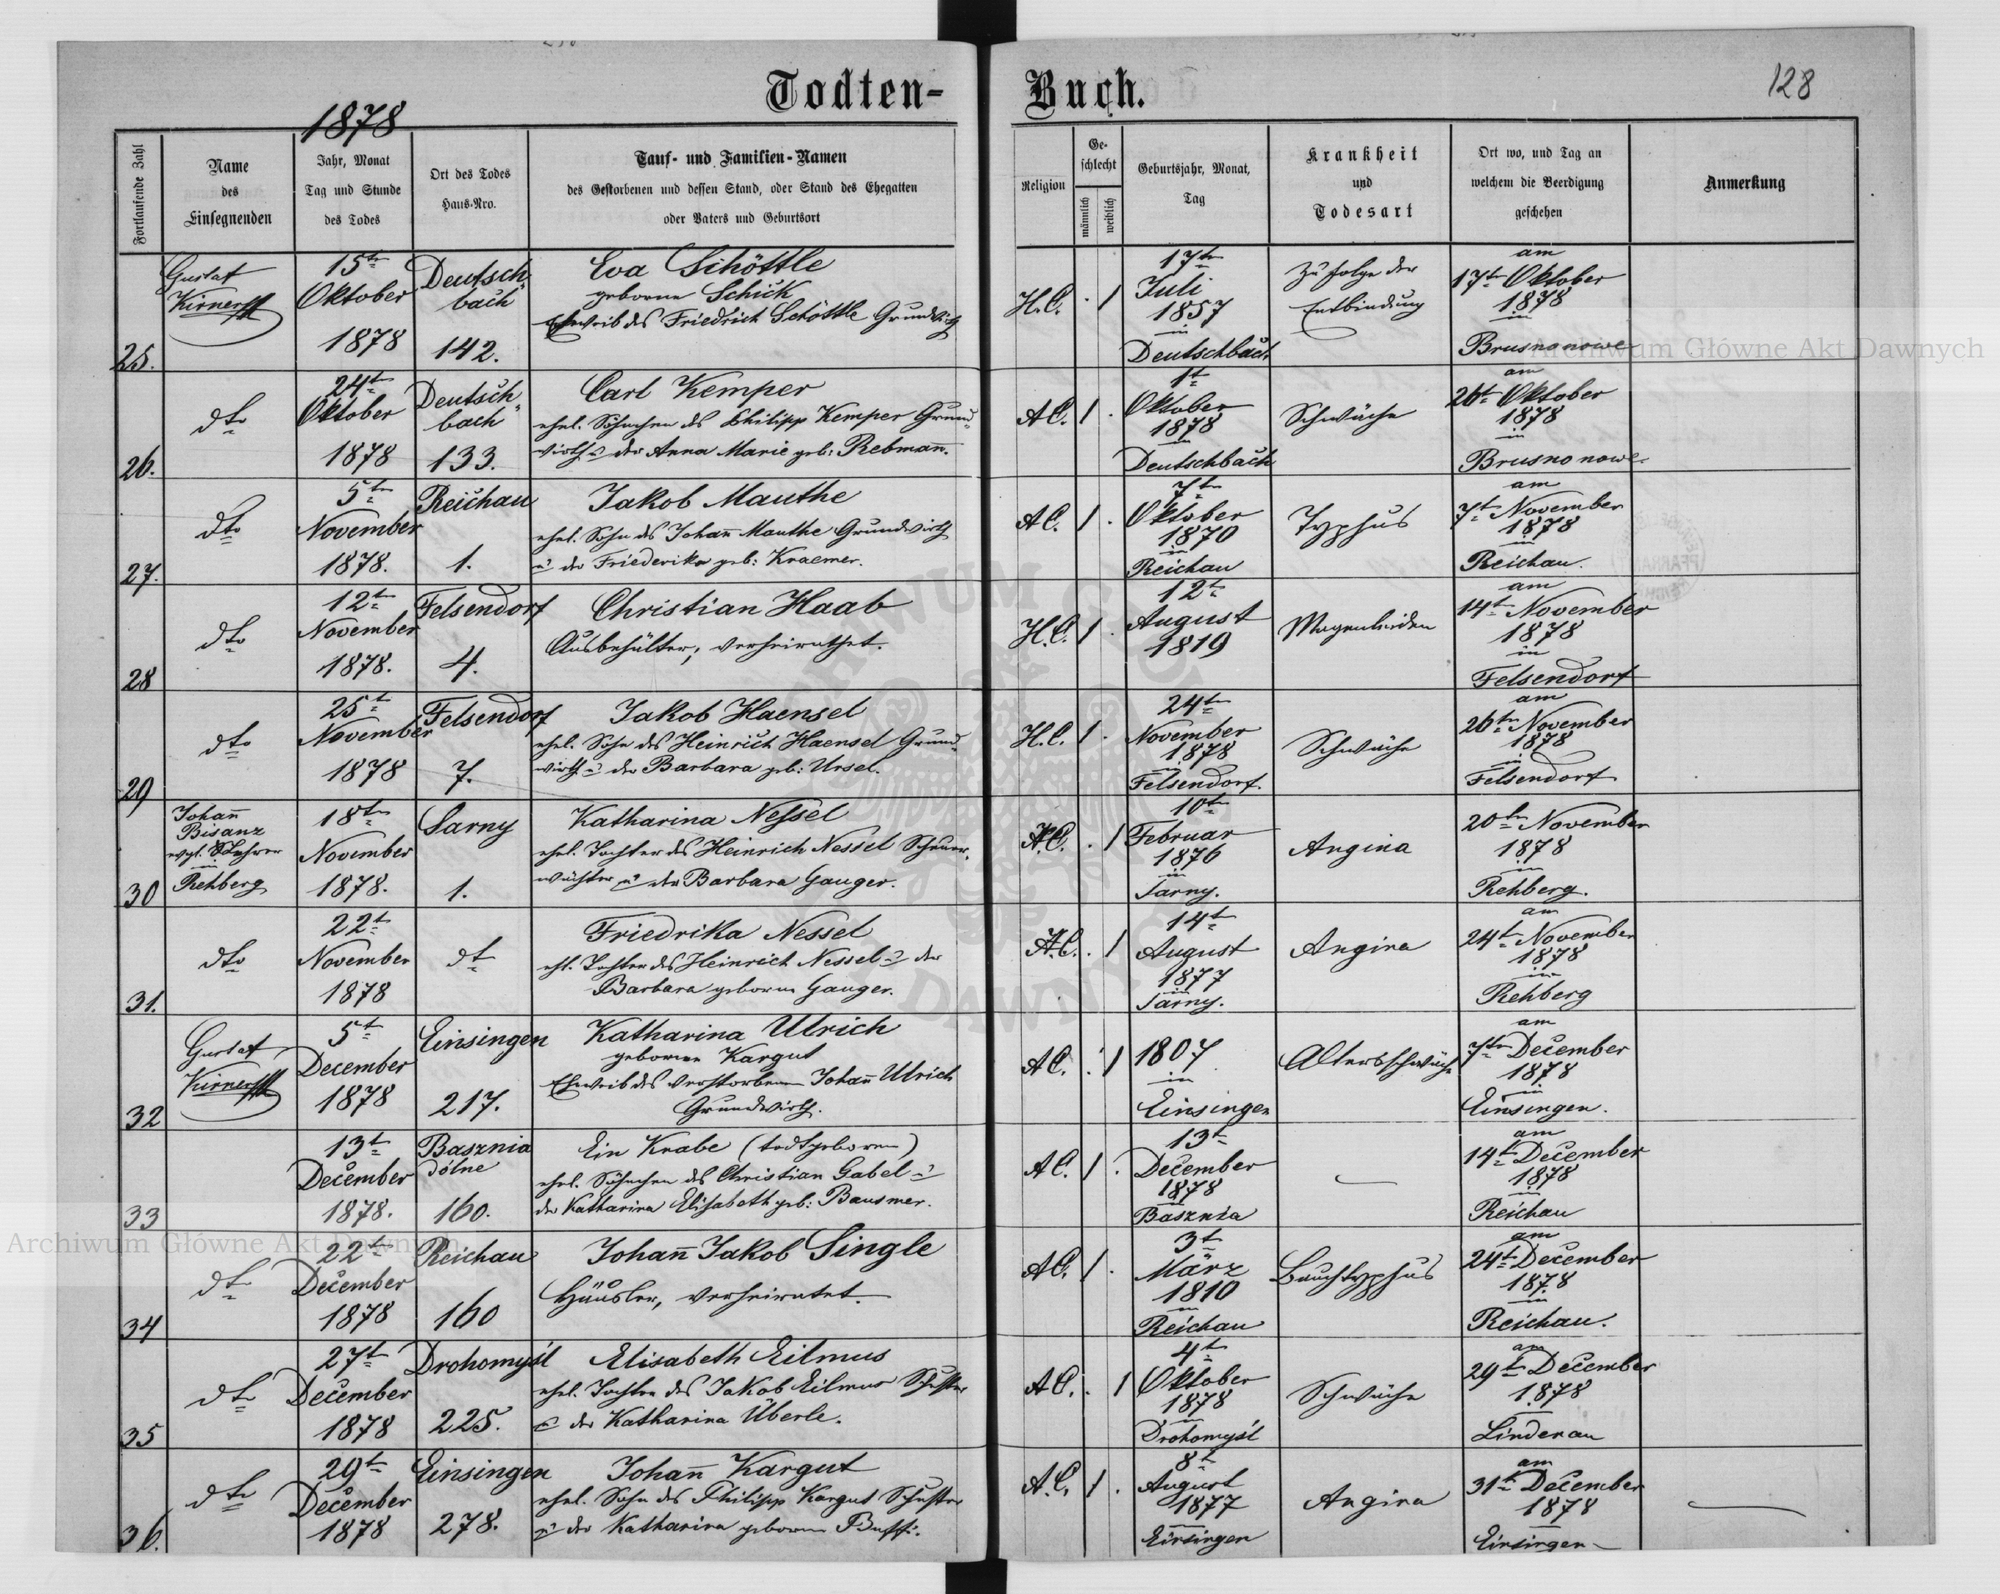 Todten-Buch.
128
1878
Fortlaufende Zahl
Name
des
Einsegnenden
Jahr, Monat
Tag und Stunde
des Todes
Ort des Todes
Haus-Nro.
Tauf- und Familien-Namen
des Gestorbenen und dessen Stand, oder Stand des Ehegatten
oder Vaters und Geburtsort
Religion
Ge-
schlecht
männlich
weiblich
Geburtsjahr, Monat,
Tag
Krankheit
und
Todesart
Ort wo, und Tag an
welchem die Beerdigung
geschehen
Anmerkung
25.
Gustaf
15te
Oktober
1878
Deutsch-
bach
142.
Eva Schöttle
geborene Schick
Eheweib des Friedrich Schöttle Grundwirth
H.C. . 1
17te
Juli
1857
in
Deutschbach
Zu folge der
Entbindung
am
17te Oktober
1878
in
Brusno nowe
26.
dto
24te
Oktober
1878
Deutsch-
bach
133.
Carl Kemper
ehel. Söhnchen des Philipp Kemper Grund-
wirth u der Anna Marie geb: Rebmann.
AC. 1 .
1t
Oktober
1878
in
Deutschbach
Schwäche
am
26te Oktober
1878
in
Brusno nowe.
27.
dto
5te
November
1878.
Reichau
1.
Jakob Mauthe
ehel. Sohn des Johañ Mauthe Grundwirth
u der Friederika geb: Kraemer.
AC. 1 .
7te
Oktober
1870
in
Reichau
Typhus
am
7te November
1878
in
Reichau.
28
dto
12te
November
1878.
Felsendorf
4.
Christian Haab
Ausbehälter, verheirathet.
H.C. 1 .
12te
August
1819
Magenleiden
am
14te November
1878
in
Felsendorf
29
dto
25te
November
1878
Felsendorf
7.
Jakob Haensel
ehel. Sohn des Heinrich Haensel Grund-
wirth u der Barbara geb: Ursel.
H.C. 1 .
24te
November
1878
in
Felsendorf.
Schwäche
am
26te November
1878
in
Felsendorf
30
Johañ
Bisanz
evgl. Lehrer
in
Rehberg
18te
November
1878.
Sarny
1.
Katharina Nessel
ehel. Tochter des Heinrich Nessel
wächter u der Barbara Gauger.
. 1
10te
Februar
1876
in
Sarny.
Angina
20te November
1878
in
Rehberg.
31.
dto
22te
November
1878
dt
Friedrika Nessel
ehl. Tochter des Heinrich Nessel u der
Barbara geborne Gauger.
. 1
14te
August
1877
in
Sarny.
Angina
am
24te November
1878
in
Rehberg
32
Gustaf
5te
December
1878
Einsingen
217.
Katharina Ulrich
geborene Kargut
Eheweib des verstorbenen Johañ Ulrich
Grundwirth.
AC. . 1
1807
in
Einsingen
Altersschwäche
am
7te December
1878
in
Einsingen.
33
13te
December
1878.
Basznia
dolne
160.
Ein Knabe (todtgeboren)
ehel. Söhnchen des Christian Gabel u
der Katharina Elisabeth geb: Bausmer.
AC. 1 .
13te
December
1878
Basznia
am
14te December
1878
in
Reichau
34
dto
22te
December
1878
Reichau
160
Johañ Jakob Single
Häusler, verheiratet.
AC. 1 .
3t
März
1810
in
Reichau
Bauchtyphus
am
24te December
1878
in
Reichau.
35
dto
27te
December
1878
Drohomyśl
225.
Elisabeth Eilmus
ehel. Tochter des Jakob Eilmus Schuster
u der Katharina Überle.
AC. . 1
4t
Oktober
1878
in
Drohomyśl
Schwäche
am
29te December
1878
Lindenau
36.
dto
29te
December
1878
Einsingen
278.
Johañ Kargut
ehel. Sohn des Philipp Kargut Schuster
u der Katharina geborne
A.C. 1 .
8t
August
1877
Einsingen
Angina
am
31te December
1878
Einsingen
Archiwum Główne Akt Dawnych
Archiwum Główne Akt Dawnych